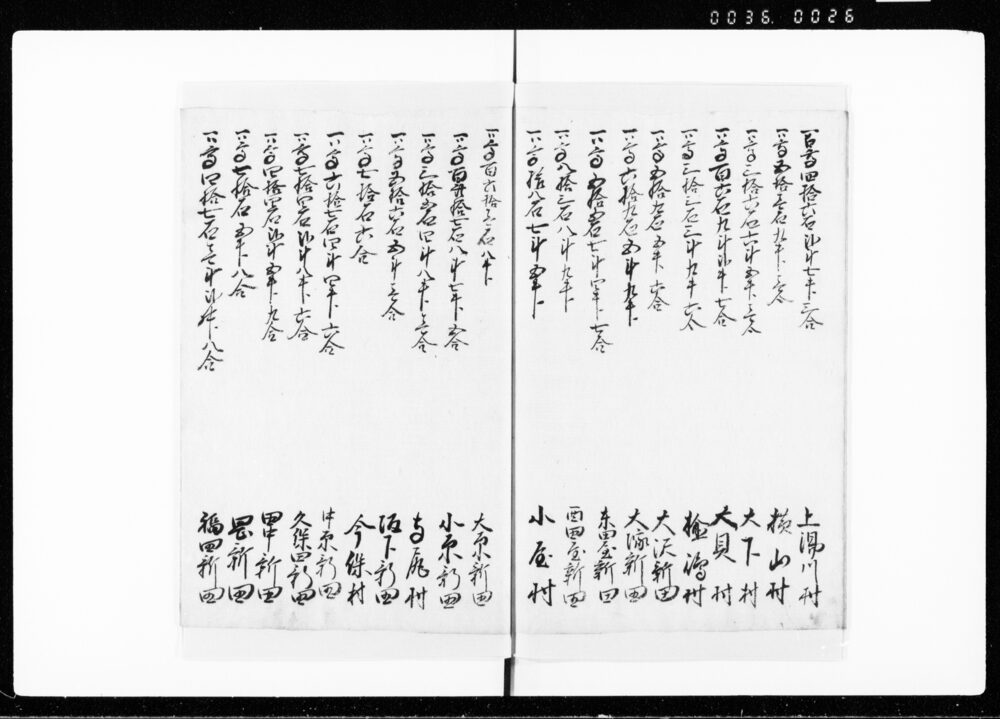 0036. 0026
一高四拾六石弐斗七升三合 上湯川村
一高五拾壱石九升三合 横山村
一高三拾六石六斗五升三合 大下村
一高百六石九斗弐升七合 大貝村
一高三拾三石三斗九升六合 村
一高五拾石五升六合 大沢新田
一高六拾九石五斗九升 大塚新田
一高五拾四石七斗四升七合 東田屋新田
一高八拾三石八斗九升 西田屋新田
一高拾八石七斗五升 小屋村
一高百六拾三石八升 大原新田
一高百拾七石八斗七升五合 小原新田
一高三拾五石四斗八升三合 寺尾村
一高五拾六石五斗三合 坂下新田
一高七拾石六合 今保村
一高六拾七石四斗四升六合 中原新田
一高七拾四石弐斗八升六合 久保田新田
一高四拾四石弐斗五升九合 田中新田
一高七拾石五升八合 黒新田
一高四拾七石壱斗弐升八合 福田新田